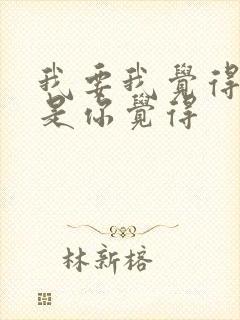 我要我覺得
是你覺得
林新榕